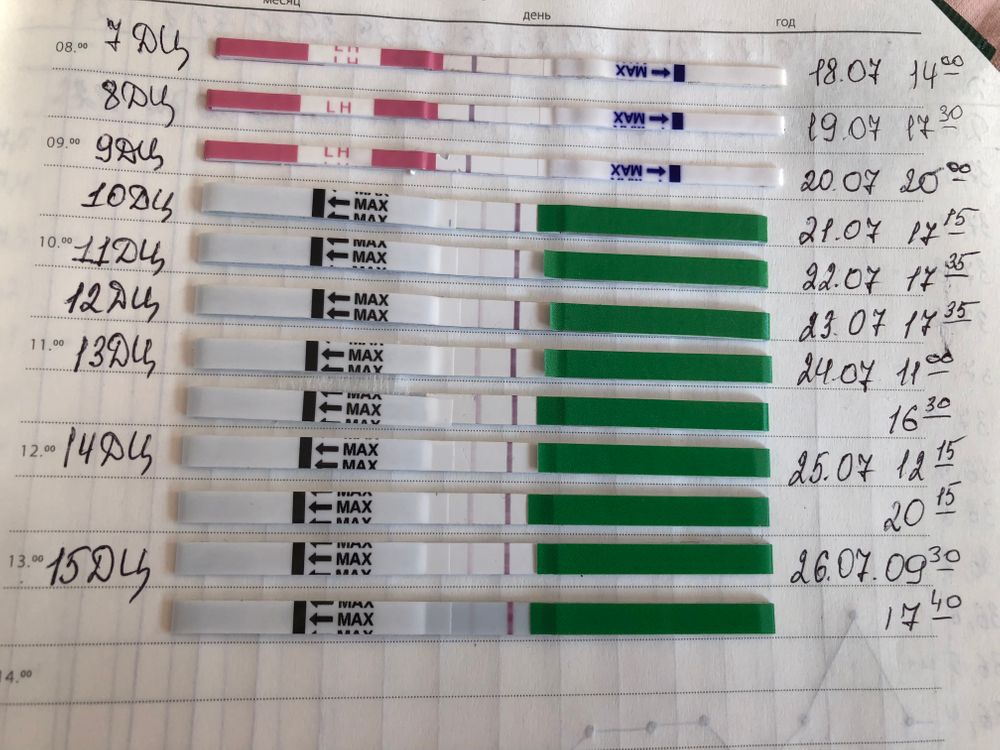 месяц день год
08.00 7 ДЦ LH MAX 18.07 14 00
8ДЦ LH MAX 19.07 17 30
09.00 9ДЦ LH MAX 20.07 20 00
10ДЦ MAX 21.07 17 15
10.00 11ДЦ MAX 22.07 17 35
12ДЦ MAX 23.07 17 35
11.00 13ДЦ MAX 24.07 11 00
MAX 16 30
12.00 14ДЦ MAX 25.07 12 15
MAX 20 15
13.00 15ДЦ MAX 26.07. 09 30
MAX 17 40
14.00